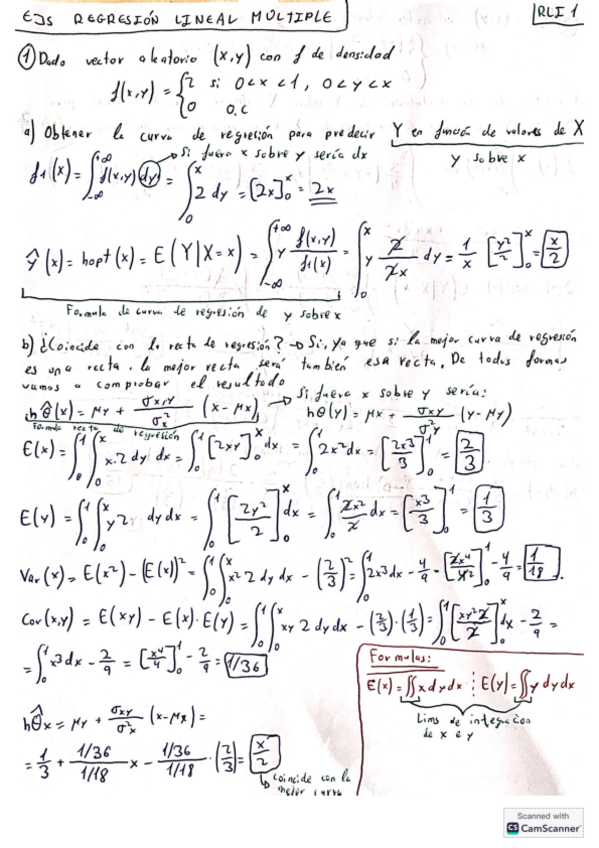 EJS REGRESIÓN LINEAL MÚLTIPLE
RLI 1
① Dado vector aleatorio (x,y) con f de densidad
f(x,y) = {2 si 0<x<1, 0<y<x
0 o.c
a) Obtener la curva de regresión para predecir Y en función de valores de X
Si fuera x sobre y sería dx
y sobre x
f1(x) = ∫_{-∞}^{+∞} f(x,y) dy = ∫_0^x 2 dy = [2x]_0^x = 2x
ŷ(x) = hopt(x) = E(Y|X=x) = ∫_{-∞}^{+∞} y f(x,y)/f1(x) = ∫_0^x y 2/2x dy = 1/x [y²/2]_0^x = x/2
Formula de curva de regresión de y sobre x
b) ¿Coincide con la recta de regresión? → Si, ya que si la mejor curva de regresión
es una recta, la mejor recta será también esa recta. De todos formas
vamos a comprobar el resultado
Si fuera x sobre y sería:
hθ̂(x) = μy + σx,y/σx² (x - μx)
hθ(y) = μx + σxy/σ²y (y - μy)
Formula recta de regresión
E(x) = ∫_0^1 ∫_0^x x·2 dy dx = ∫_0^1 [2xy]_0^x dx = ∫_0^1 2x² dx = [2x³/3]_0^1 = 2/3
E(y) = ∫_0^1 ∫_0^x y 2 dy dx = ∫_0^1 [2y²/2]_0^x dx = ∫_0^1 2x²/2 dx = [x³/3]_0^1 = 1/3
Var(x) = E(x²) - (E(x))² = ∫_0^1 ∫_0^x x² 2 dy dx - (2/3)² = ∫_0^1 2x³ dx - 4/9 = [2x⁴/4]_0^1 - 4/9 = 1/18
Cov(x,y) = E(xy) - E(x)·E(y) = ∫_0^1 ∫_0^x xy 2 dy dx - (2/3)·(1/3) = ∫_0^1 [xy²2/2]_0^x dx - 2/9 =
= ∫_0^1 x³ dx - 2/9 = [x⁴/4]_0^1 - 2/9 = 1/36
Formulas:
E(x) = ∬ x dy dx ⋮ E(y) = ∬ y dy dx
Lims de integracion
de x e y
hθ̂x = μy + σxy/σ²x (x - μx) =
= 1/3 + (1/36)/(1/18) x - (1/36)/(1/18) · (2/3) = x/2
coincide con la
mejor curva
Scanned with
CS CamScanner